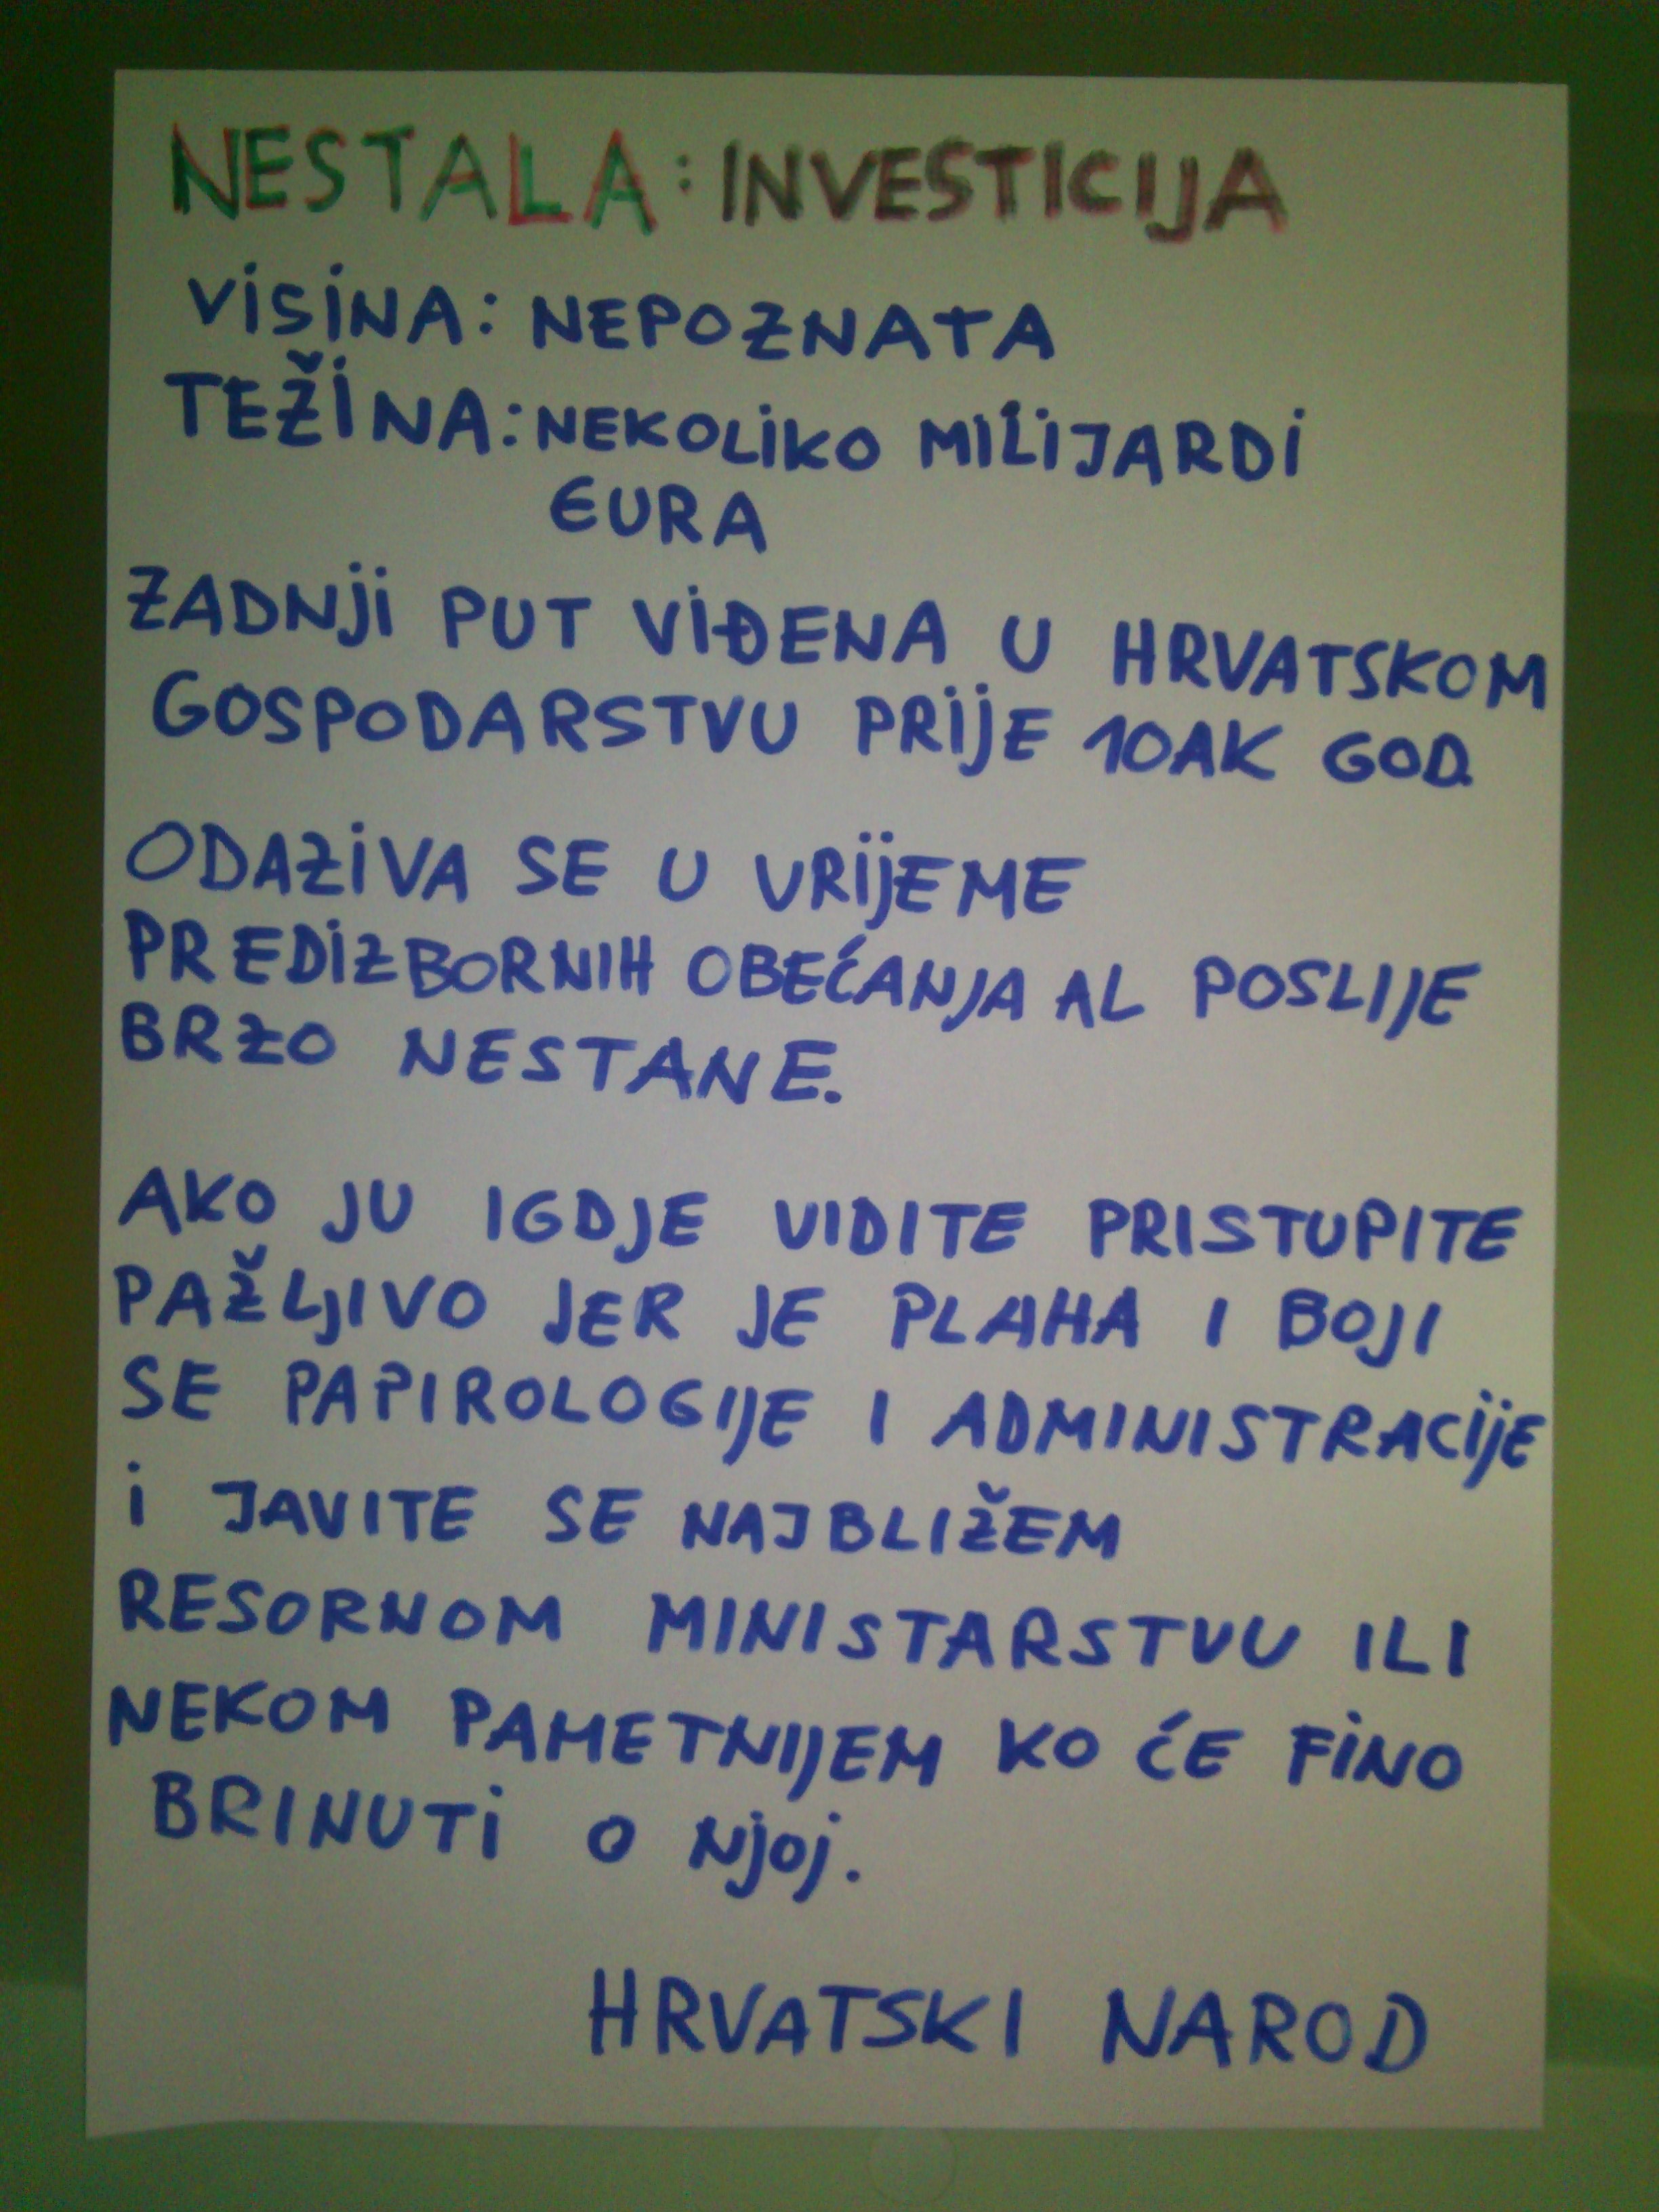 NESTALA: INVESTICIJA
VISINA: NEPOZNATA
TEŽINA: NEKOLIKO MILIJARDI
EURA
ZADNJI PUT VIĐENA U HRVATSKOM
GOSPODARSTVU PRIJE 10AK GOD.
ODAZIVA SE U VRIJEME
PREDIZBORNIH OBEĆANJA AL POSLIJE
BRZO NESTANE.
AKO JU IGDJE VIDITE PRISTUPITE
PAŽLJIVO JER JE PLAHA I BOJI
SE PAPIROLOGIJE I ADMINISTRACIJE
I JAVITE SE NAJBLIŽEM
RESORNOM MINISTARSTVU ILI
NEKOM PAMETNIJEM KO ĆE FINO
BRINUTI O NJOJ.
HRVATSKI NAROD